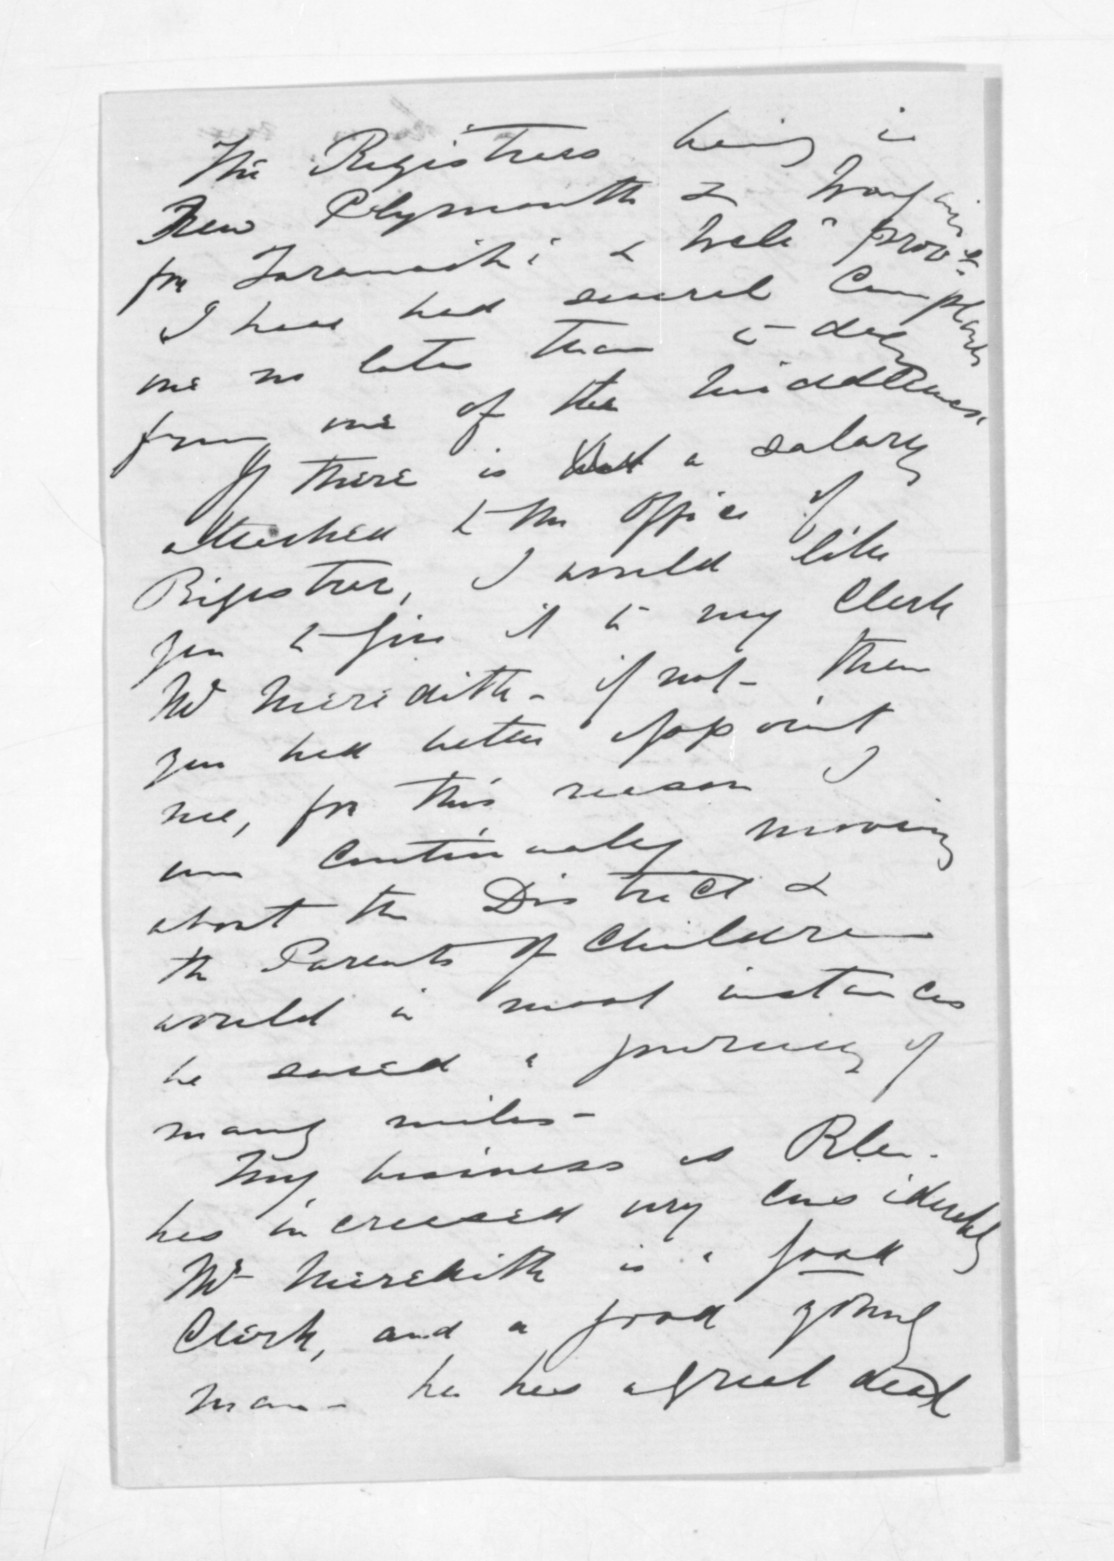 The Registrars being in
New Plymouth & Wanganui
for Taranaki & Well" Provces.
I have had several Complaints
one no later than to-day
from one of the
If there is a salary
attached to the office of
Registrar, I would like
you to give it to my Clerk
Mr Meredith - if not - then
you had better appoint
me, for this reason I
am continually moving
about the District &
the Parents of Children
would in most instances
be saved a journey of
many miles -
My business as R.M.
has increased very considerably
Mr Meredith is a good
Clerk, and a good young
man - he has a great deal